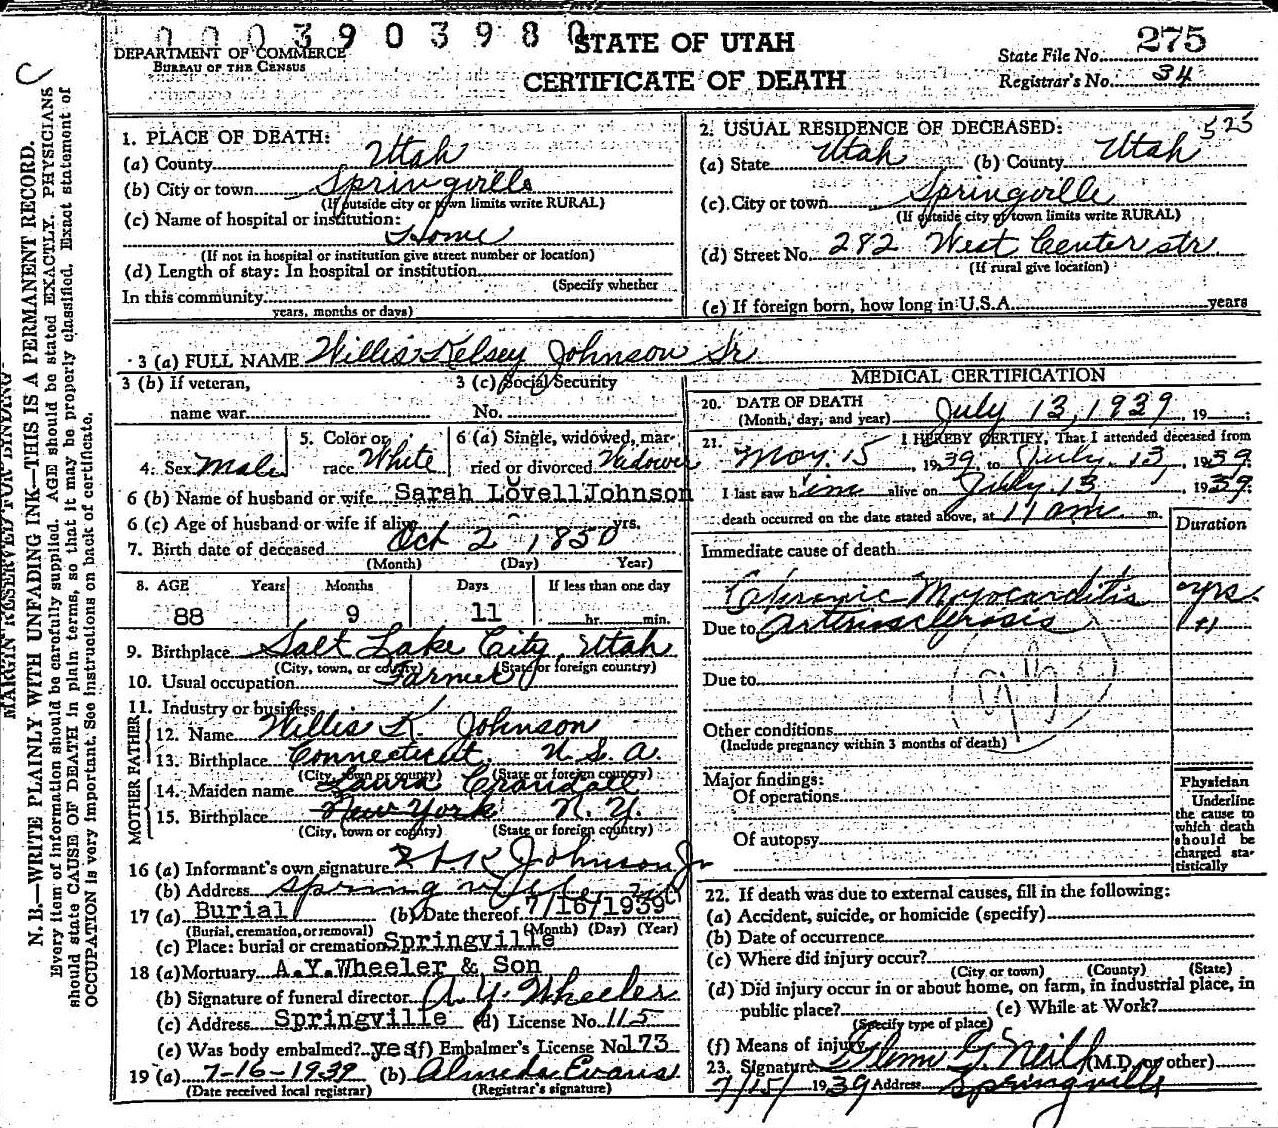 0003903980
DEPARTMENT OF COMMERCE
BUREAU OF THE CENSUS
STATE OF UTAH
CERTIFICATE OF DEATH
State File No. 275
Registrar's No. 34
C
MARGIN RESERVED FOR BINDING
N. B.—WRITE PLAINLY WITH UNFADING INK—THIS IS A PERMANENT RECORD.
Every item of information should be carefully supplied. AGE should be stated EXACTLY. PHYSICIANS
should state CAUSE OF DEATH in plain terms, so that it may be properly classified. Exact statement of
OCCUPATION is very important. See instructions on back of certificate.
1. PLACE OF DEATH:
(a) County Utah
(b) City or town Springville
(If outside city or town limits write RURAL)
(c) Name of hospital or institution:
Home
(If not in hospital or institution give street number or location)
(d) Length of stay: In hospital or institution
(Specify whether
In this community
years, months or days)
2. USUAL RESIDENCE OF DECEASED: 525
(a) State Utah (b) County Utah
(c) City or town Springville
(If outside city of town limits write RURAL)
(d) Street No. 282 West Center str
(If rural give location)
(e) If foreign born, how long in U.S.A. years
3 (a) FULL NAME Willis Kelsey Johnson Sr
3 (b) If veteran,
name war
3 (c) Social Security
No.
4. Sex Male
5. Color or
race White
6 (a) Single, widowed, mar-
ried or divorced Widower
6 (b) Name of husband or wife Sarah Lovell Johnson
6 (c) Age of husband or wife if alive yrs.
7. Birth date of deceased Oct 2 1850
(Month) (Day) Year)
8. AGE Years Months Days If less than one day
88 9 11 hr. min.
9. Birthplace Salt Lake City, Utah
(City, town, or county) (State or foreign country)
10. Usual occupation Farmer
11. Industry or business
FATHER
12. Name Willis K. Johnson
13. Birthplace Connecticut U.S.A.
(City, town or county) (State or foreign country)
MOTHER
14. Maiden name Laura Crandall
15. Birthplace New York N.Y.
(City, town or county) (State or foreign country)
16 (a) Informant's own signature W.K. Johnson Jr
(b) Address Springville, Utah
17 (a) Burial (b) Date thereof 7/16/1939
(Burial, cremation, or removal) (Month) (Day) (Year)
(c) Place: burial or cremation Springville
18 (a) Mortuary A.Y. Wheeler & Son
(b) Signature of funeral director A.Y. Wheeler
(c) Address Springville (d) License No. 115
(e) Was body embalmed? yes (f) Embalmer's License No. 173
19 (a) 7-16-1939 (b) Almeda Evans
(Date received local registrar) (Registrar's signature)
MEDICAL CERTIFICATION
20. DATE OF DEATH
(Month, day, and year) July 13, 1939, 19 ;
21. I HEREBY CERTIFY, That I attended deceased from
May. 15 1939, to July. 13, 1939.
I last saw him alive on July 13, 1939
death occurred on the date stated above, at 11 am m.
Duration
Immediate cause of death
Chronic Myocarditis yrs.
Due to Arteriosclerosis "
Due to
Other conditions
(Include pregnancy within 3 months of death)
Major findings:
Of operations
Of autopsy
Physician
Underline
the cause to
which death
should be
charged sta-
tistically
22. If death was due to external causes, fill in the following:
(a) Accident, suicide, or homicide (specify)
(b) Date of occurrence
(c) Where did injury occur?
(City or town) (County) (State)
(d) Did injury occur in or about home, on farm, in industrial place, in
public place? (e) While at Work?
(Specify type of place)
(f) Means of injury
23. Signature Glenn G. Neil (M.D. or other)
7/15/ 1939 Address Springville